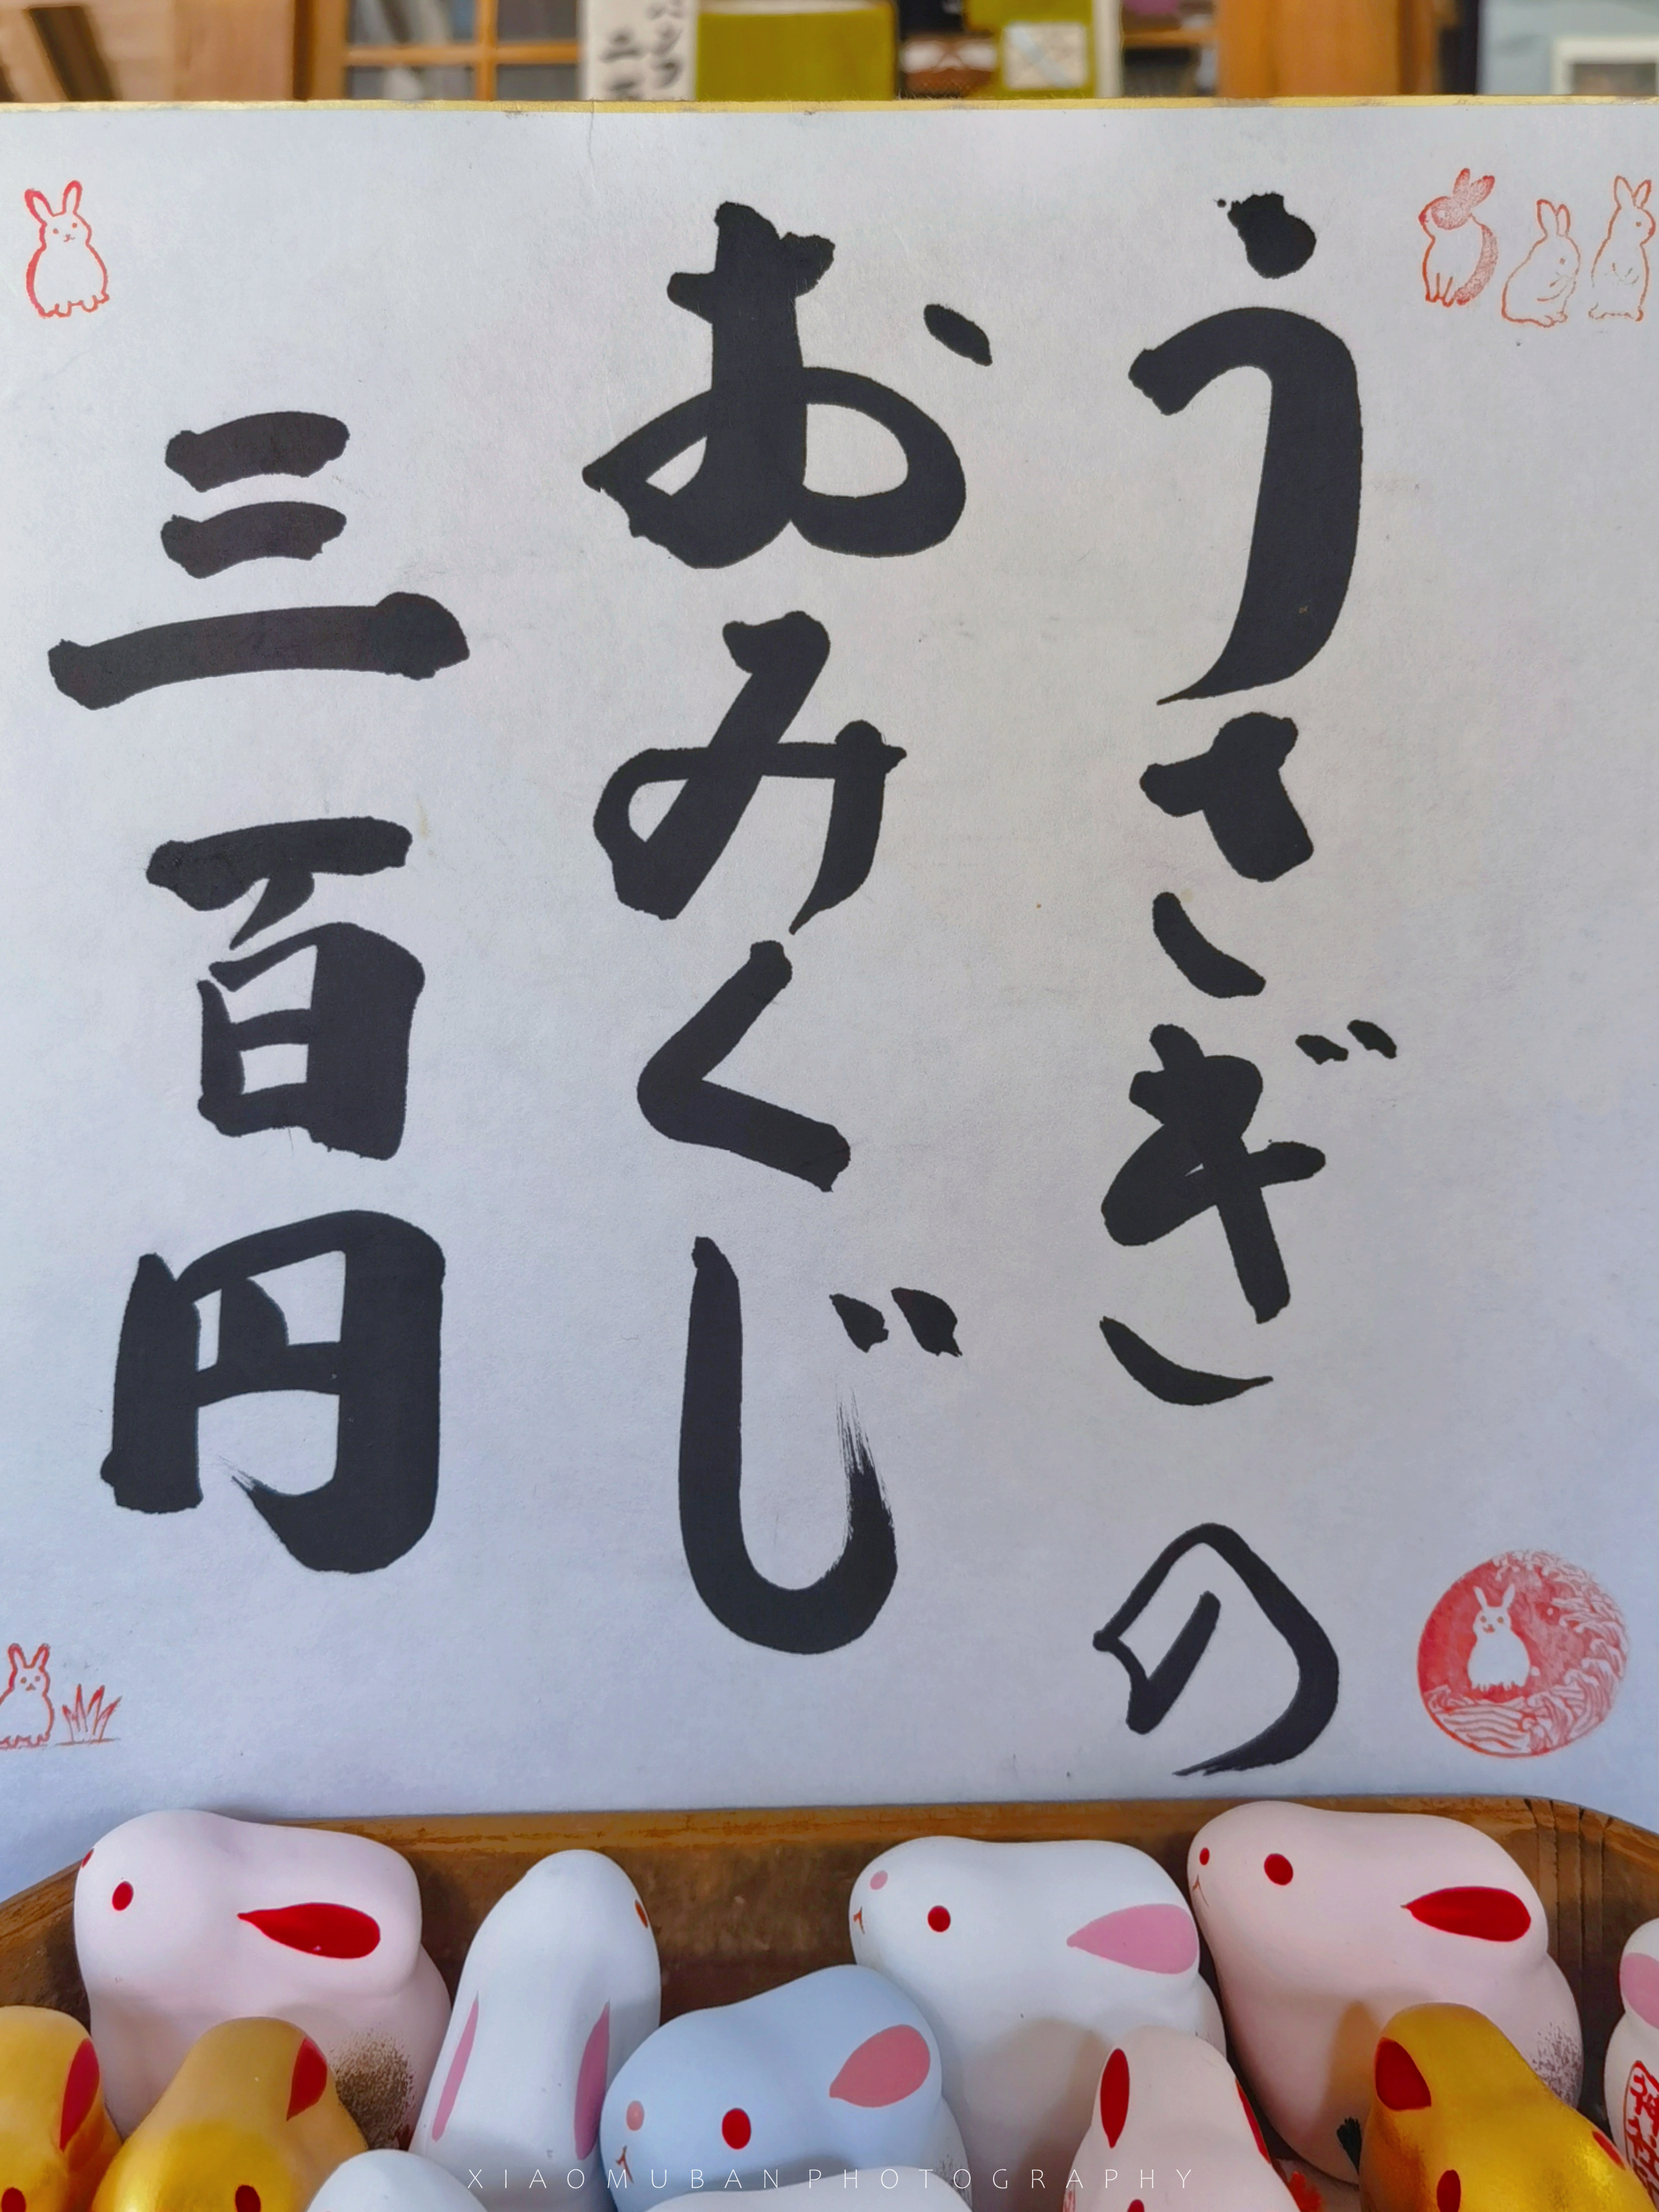 うさぎの
おみくじ
三百円
XIAOMUBAN PHOTOGRAPHY